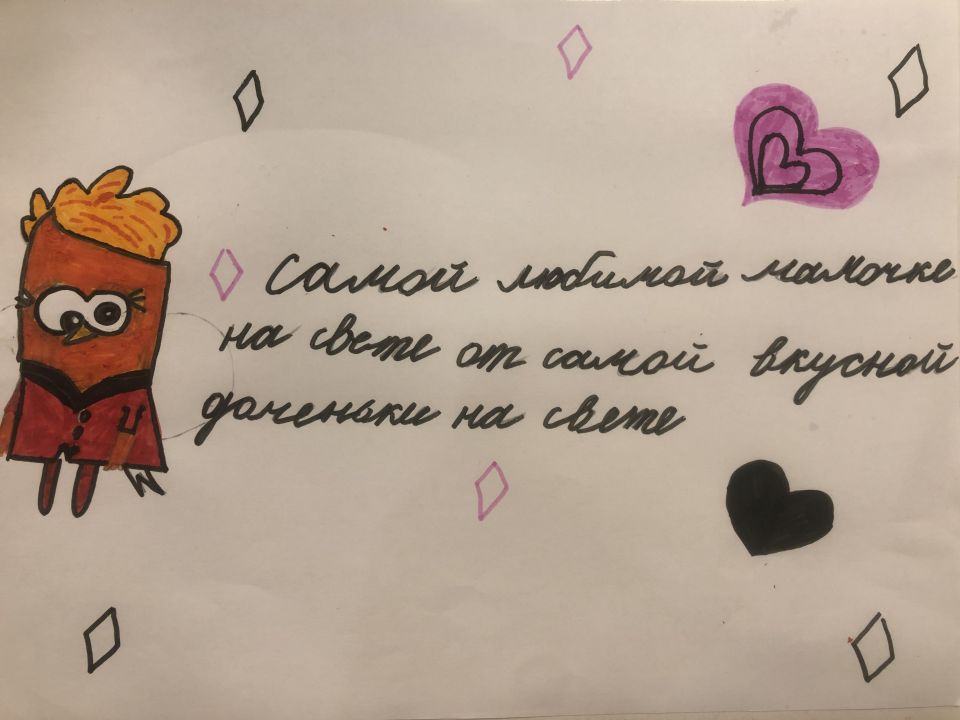 Самой любимой мамочке
на свете от самой вкусной
доченьки на свете